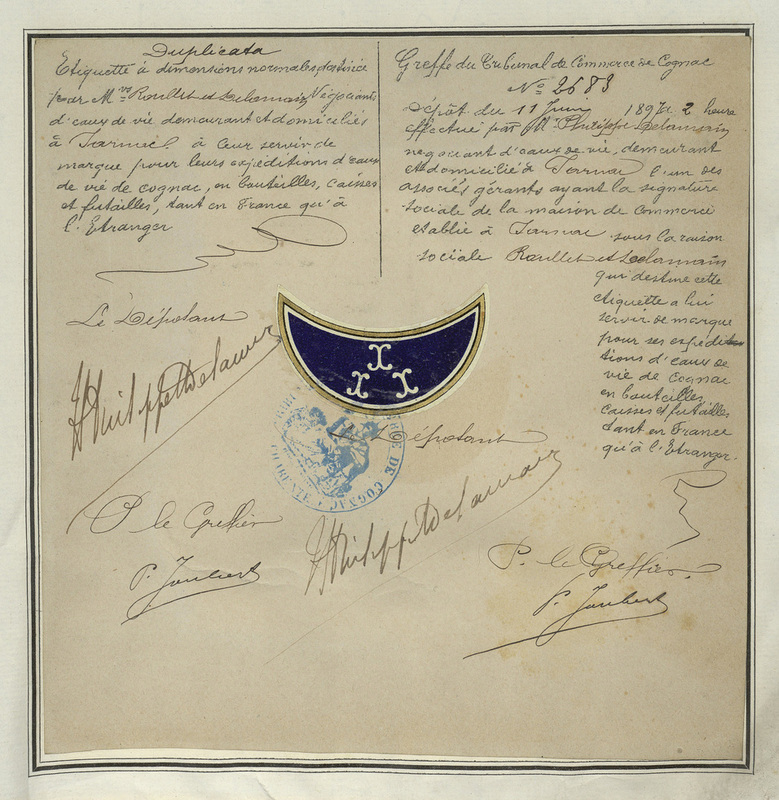 Duplicata
Etiquette à dimensions normales destinée
pour Mrs Roullet et Delamain Négociants
d'eaux de vie demeurant et domiciliés
à Jarnac à leur servir de
marque pour leurs expéditions d'eaux
de vie de cognac, en bouteilles, caisses
et futailles, tant en France qu'à
l'Etranger
Le Déposant
Philippe Delamain
P le Greffier
P. Joubert
Greffe du Tribunal de Commerce de Cognac
No 2583
Dépôt du 11 Juin 1897 à 2 heures
effectué par M Philippe Delamain
négociant d'eaux de vie, demeurant
et domicilié à Jarnac l'un des
associés gérants ayant la signature
sociale de la maison de Commerce
etablie à Jarnac sous la raison
sociale Roullet et Delamain
qui destine cette
etiquette a lui
servir de marque
pour ses expédi-
tions d'eaux de
vie de cognac
en bouteilles,
caisses et futailles
tant en France
qu'à l'Etranger.
Le Déposant
Philippe Delamain
P. le Greffier
P. Joubert
DE COGNAC